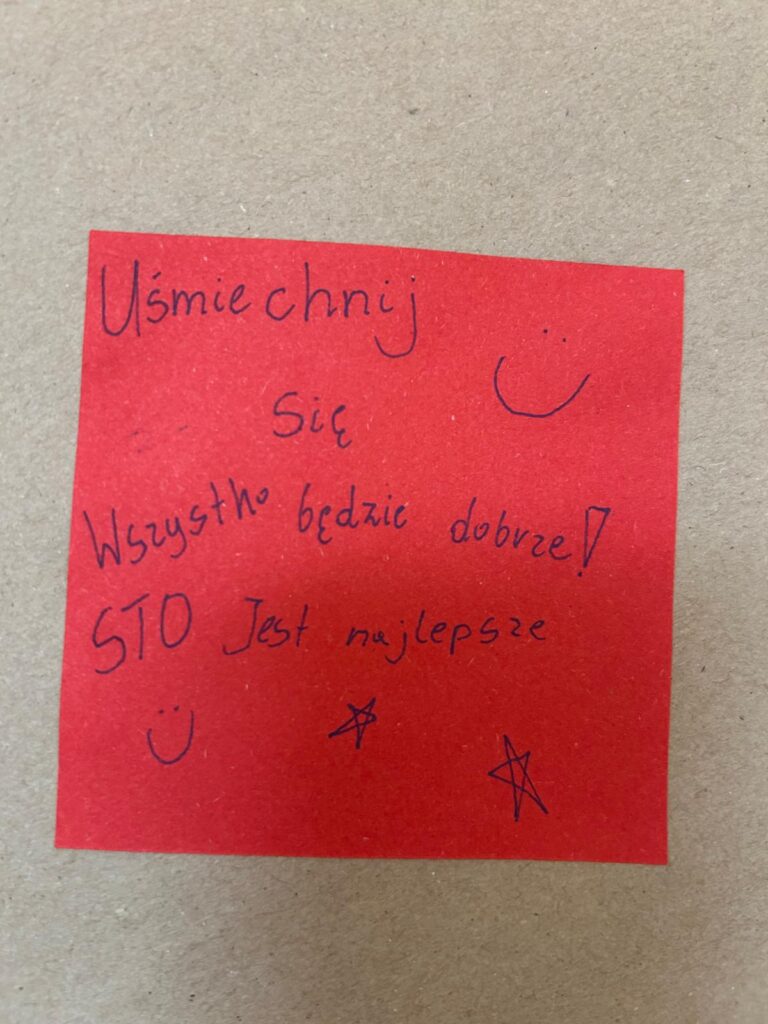 Uśmiechnij
Się
Wszystko będzie dobrze!
STO Jest najlepsze